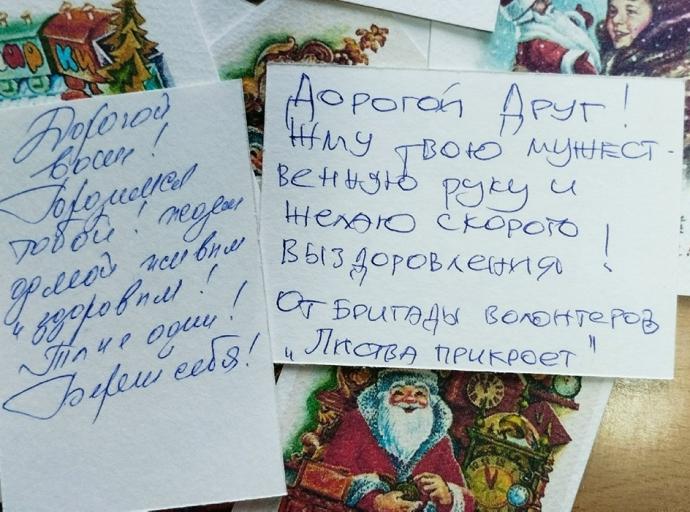 АР КИ
Дорогой
воин!
Гордимся
тобой! Ждем
домой живым
и здоровым!
Ты не один!
Береги себя!
Дорогой Друг!
Жму твою мужест-
венную руку и
желаю скорого
выздоровления!
От бригады волонтеров
"Листва прикроет"